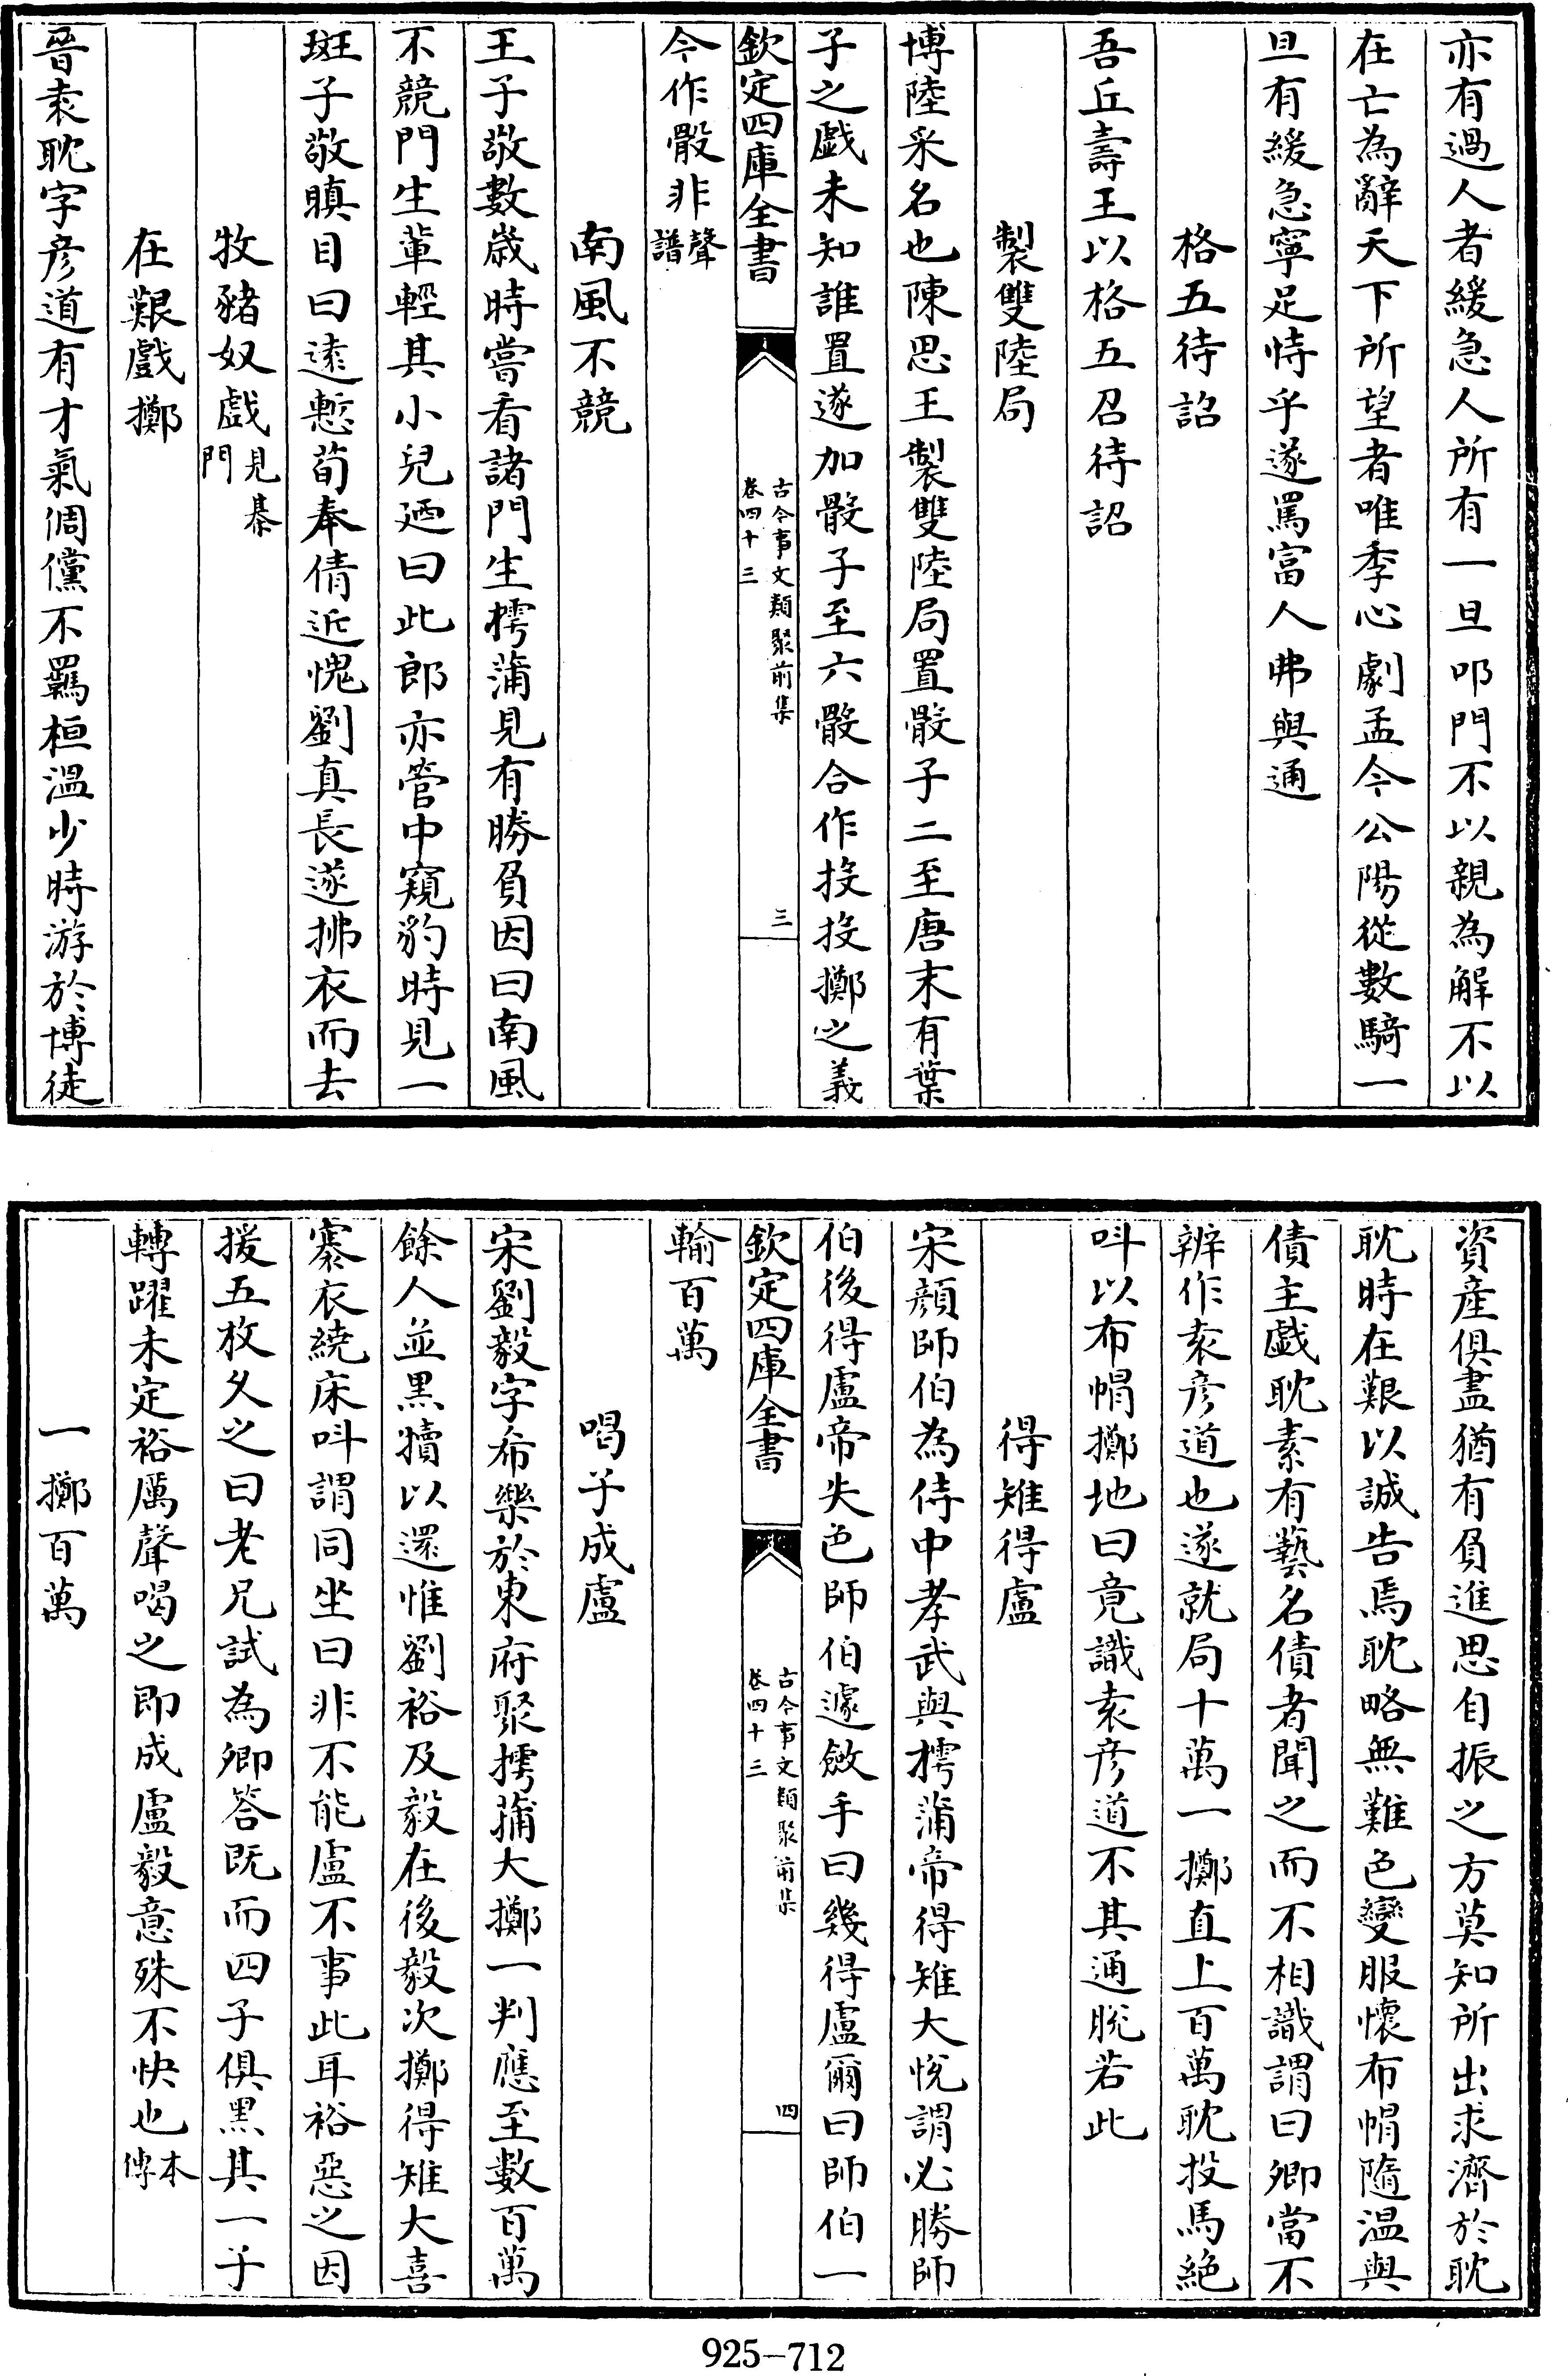 亦有過人者緩急人所有一旦叩門不以親為解不以
在亡為辭天下所望者唯季心劇孟今公陽從數騎一
旦有緩急寧足恃乎遂罵富人弗與通
格五待詔
吾丘壽王以格五召待詔
製雙陸局
博陸采名也陳思王製雙陸局置骰子二至唐末有葉
子之戲未知誰置遂加骰子至六骰合作投投擲之義
欽定四庫全書
古今事文類聚前集
卷四十三
三
今作骰非聲
譜
南風不競
王子敬數歳時嘗看諸門生摴蒲見有勝負因曰南風
不競門生輩輕其小兒廼曰此郎亦管中窺豹時見一
斑子敬瞋目曰遠慙荀奉倩近愧劉真長遂拂衣而去
牧豬奴戲見棊
門
在艱戲擲
晉袁耽字彥道有才氣倜儻不羈桓溫少時游於博徒
資產俱盡猶有負進思自振之方莫知所出求濟於耽
耽時在艱以誠告焉耽略無難色變服懷布帽隨溫與
債主戲耽素有藝名債者聞之而不相識謂曰卿當不
辦作袁彥道也遂就局十萬一擲直上百萬耽投馬絕
叫以布帽擲地曰竟識袁彥道不其通脫若此
得雉得盧
宋顔師伯為侍中孝武與摴蒲帝得雉大悅謂必勝師
伯後得盧帝失色師伯遽斂手曰幾得盧爾曰師伯一
欽定四庫全書
古今事文類聚前集
卷四十三
四
輸百萬
喝子成盧
宋劉毅字希樂於東府聚摴蒱大擲一判應至數百萬
餘人並黑犢以還惟劉裕及毅在後毅次擲得雉大喜
褰衣繞床叫謂同坐曰非不能盧不事此耳裕惡之因
援五枚久之曰老兄試為卿答既而四子俱黑其一子
轉躍未定裕厲聲喝之即成盧毅意殊不快也本
傳
一擲百萬
925-712